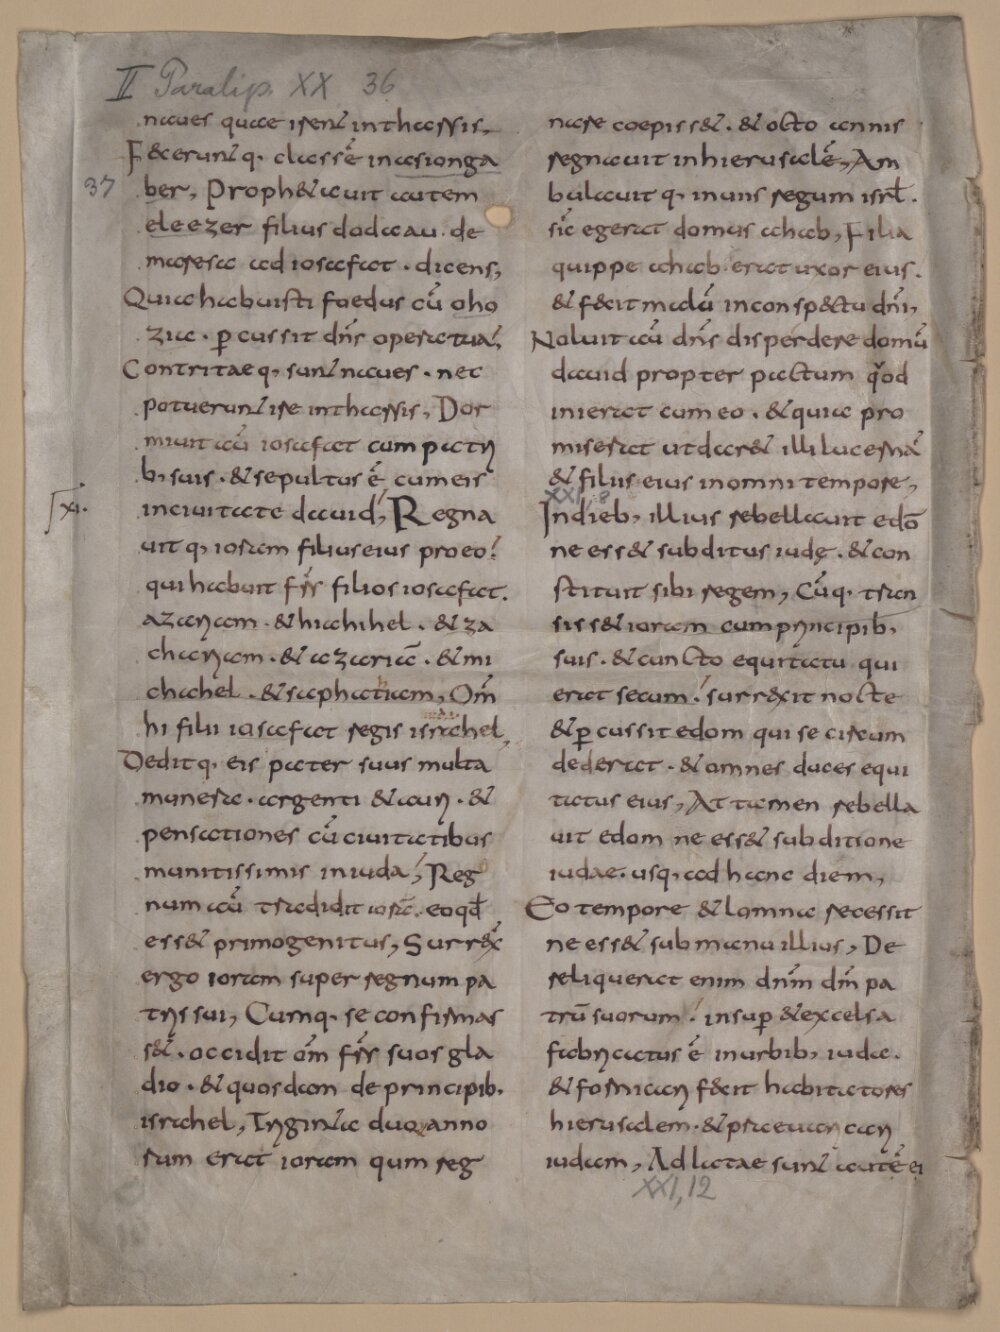 II Paralip. XX 36
naues quae irent intharsis,
Fecerunt q, classē inasionga
37
ber, Prophetauit autem
eleezer filius dodaau de
maresa ad iosafat . dicens,
Quia habuisti foedus cū oho
zia . ꝑcussit dn̄s opera tua,
Contritae q, sunt naues . nec
potuerunt ire inthassis, Dor
miuit aū iosafat cum patri
b, suis . & sepultus ē cum eis
inciuitate dauid, Regna
xi.
uit q, ioram filius eius pro eo.
qui habuit fr̄s filios iosafat.
azariam . & hiahihel . & za
chariam . & azariā . & mi
chahel . & saphatiam, Om̄
hi filii iosafat regis israhel,
Dedit q, eis pater suus multa
munera . argenti & auri . &
pensationes cū ciuitatibus
munitissimis iniuda, Reg
num aū tradidit iorā . eo qđ
ess& primogenitus, Surrex̄
ergo ioram super regnum pa
tris sui, Cumq, se confirmas
s& . occidit om̄ fr̄s suos gla
dio . & quosdam de principib,
israhel, Triginta duo anno
rum erat ioram qum reg
nare coepiss& . & octo annis
regnauit inhierusalē, Am
bulauit q, inuiis regum isrl̄ .
sic̄ egerat domus ahab, Filia
quippe ahab erat uxor eius .
& fecit malū inconspectu dn̄i,
Noluit aū dn̄s disperdere domū
dauid propter pactum quod
inierat cum eo . & quia pro
miserat ut dar& illi lucernā
& filiis eius inomni tempore,
XXI, 8
Indieb, illius rebellauit edō
ne ess& subditus iudę . & con
stituit sibi regem, Cūq, tran
siss& ioram cum principib,
suis . & cuncto equitatu qui
erat secum . surrexit nocte
& ꝑcussit edom qui se circum
dederat . & omnes duces equi
tatus eius, Attamen rebella
uit edom ne ess& subditione
iudae . usq, ad hanc diem,
Eo tempore & lomna recessit
ne ess& sub manu illius, De
reliquerat enim dn̄m dm̄ pa
trū suorum . insuꝑ & excelsa
fabricatus ē inurbib, iuda .
& fornicari fecit habitatores
hierusalem . & praeuaricari
iudam, Adlatae sunt autē ei
XXI, 12